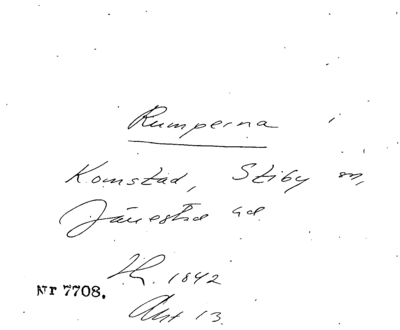 Rumperna i
Komstad, Stiby sn,
Järrestad hd
LH. 1842
Akt 13
Nr 7708.